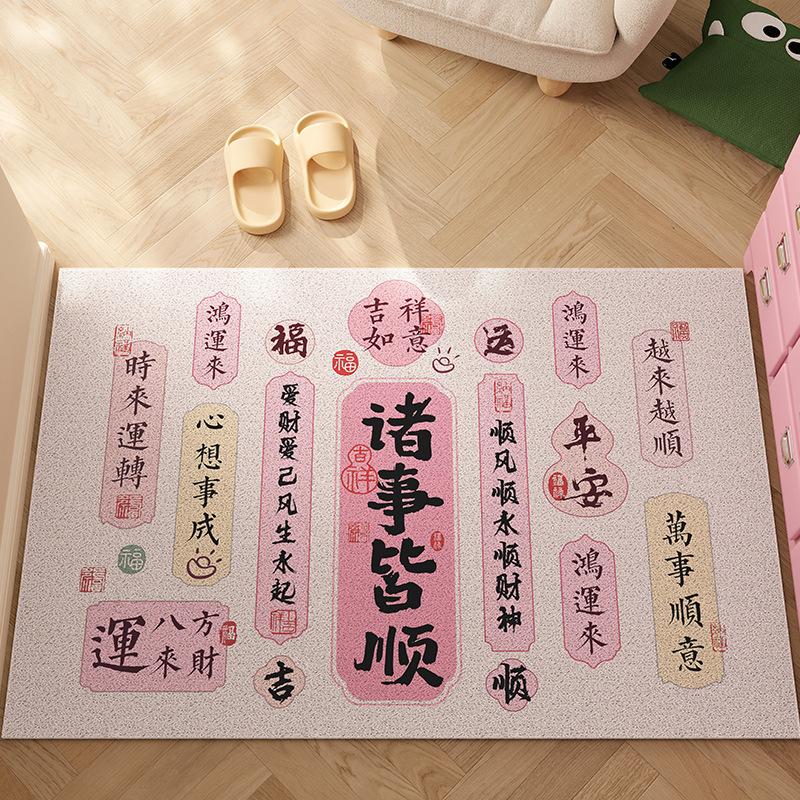 時來運轉
鴻運來
心想事成
福
福
運八方來財
福
愛财爱己风生水起
吉
吉祥如意
福
诸事皆顺
吉祥
运
顺风顺水顺财神
顺
鴻運來
平安
鴻運來
越來越順
萬事順意